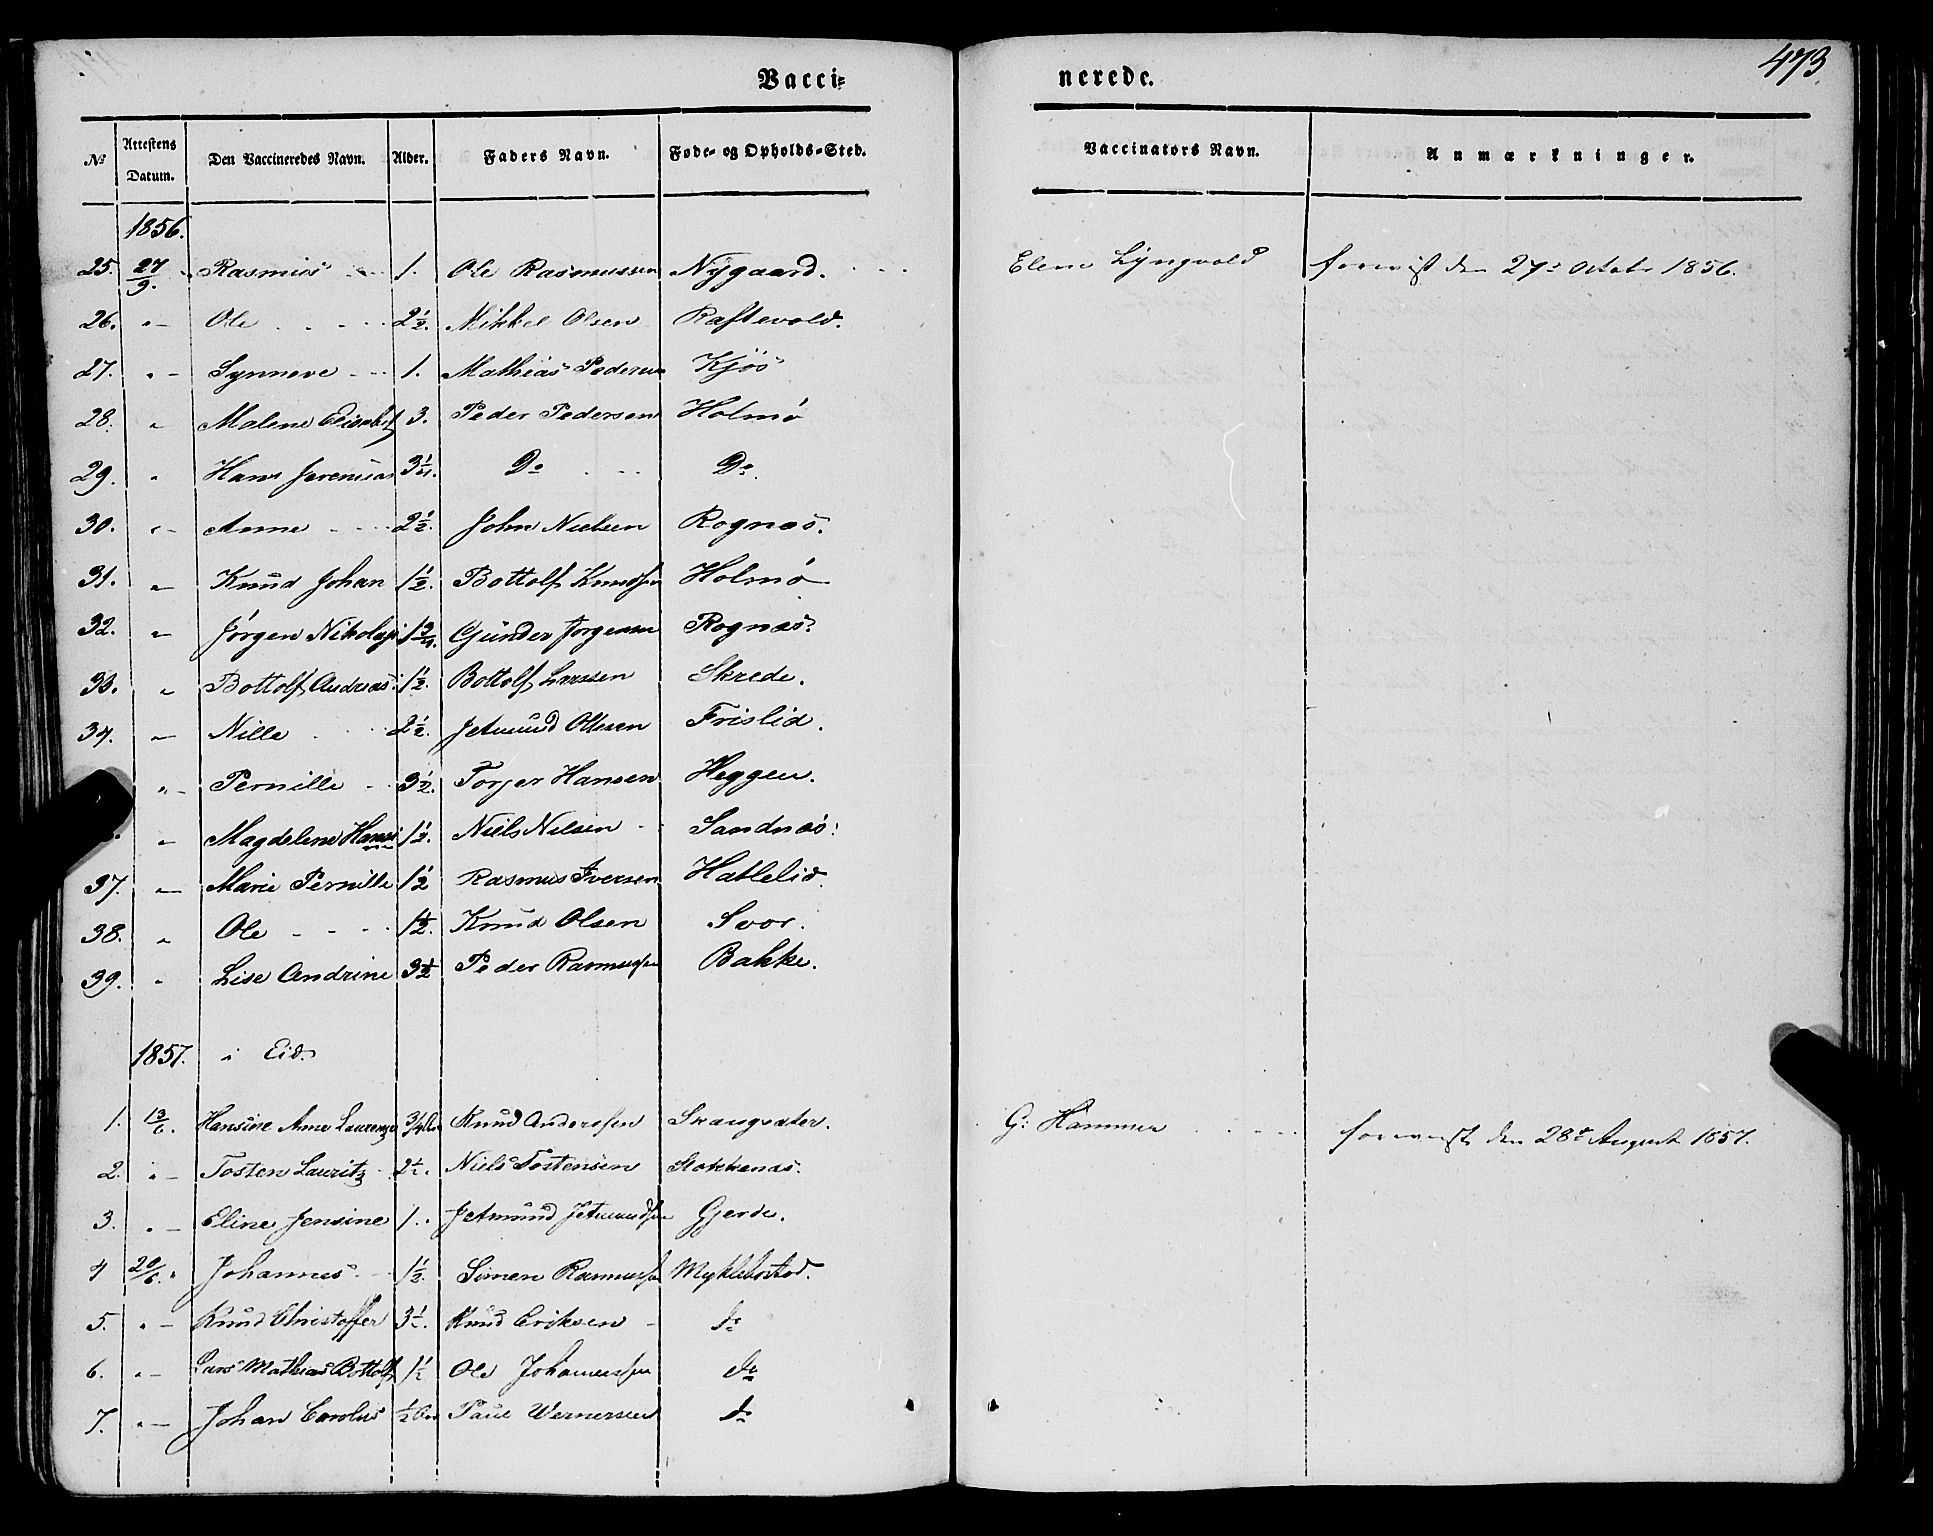 473
Vaccinerede.
No Attestens Datum. Den Vaccineredes Navn. Alder. Faders Navn. Føde- og Opholds-Sted. Vaccinators Navn. Anmærkninger.
1856.
25. 27/9. Rasmus 1. Ole Rasmussen Nygaard. Elene Lyngvold forevist den 27de Octobr 1856.
26. "- Ole 2 1/2. Mikkel Olsen Raftevold.
27. "- Synneve 1. Mathias Pedersen Kjös
28. " Malene Elisabet 3. Peder Pedersen Holmö
29. " Hans Jeremias 3 1/4. Do Do.
30. "- Anne 2 1/2. John Nielsen Rognæs.
31. " Knud Johan 1 1/2. Bottolf Knudsen Holmö
32. " Jörgen Nikolaji 1 3/4. Gunder Jörgensen Rognæs.
33. " Bottolf Andreas 1 1/2. Bottolf Larssen Skrede.
34. " Nille 2 1/2. Jetmund Ollesen Frislid.
"- Pernille 3 1/2. Torger Hansen Heggen.
" Magdelene Hansi 1 1/2. Niels Nilsen Sandnæs.
37. " Marie Pernille 1 1/2 Rasmus Iversen Hatlelid
38. " Ole 1 1/2. Knud Olsen Svor.
39. " Lise Andrine 3 1/2 Peder Rasmussen Bakke.
1857. i Eid.
1. 13/6. Hansine Anne Laurenze 3/4 Knud Anderssen Skaugsæter. G: Hammer forevist den 28de August 1857.
2. "- Tosten Lauritz 2 1/2. Niels Tostensen Stokkenæs.
3. "- Eline Jensine 1. Jetmund Jetmundsen Gjerde.
4 20/6. Johannes 1 1/2. Simen Rasmussen Myklebostad.
5. "- Knud Christoffer 3 1/2. Knud Eriksen do
6. "- Lars Mathias Bottolf 1 1/2 Ole Johannessen do
7. "- Johan Carolus 1/2 Paul Wernersen do